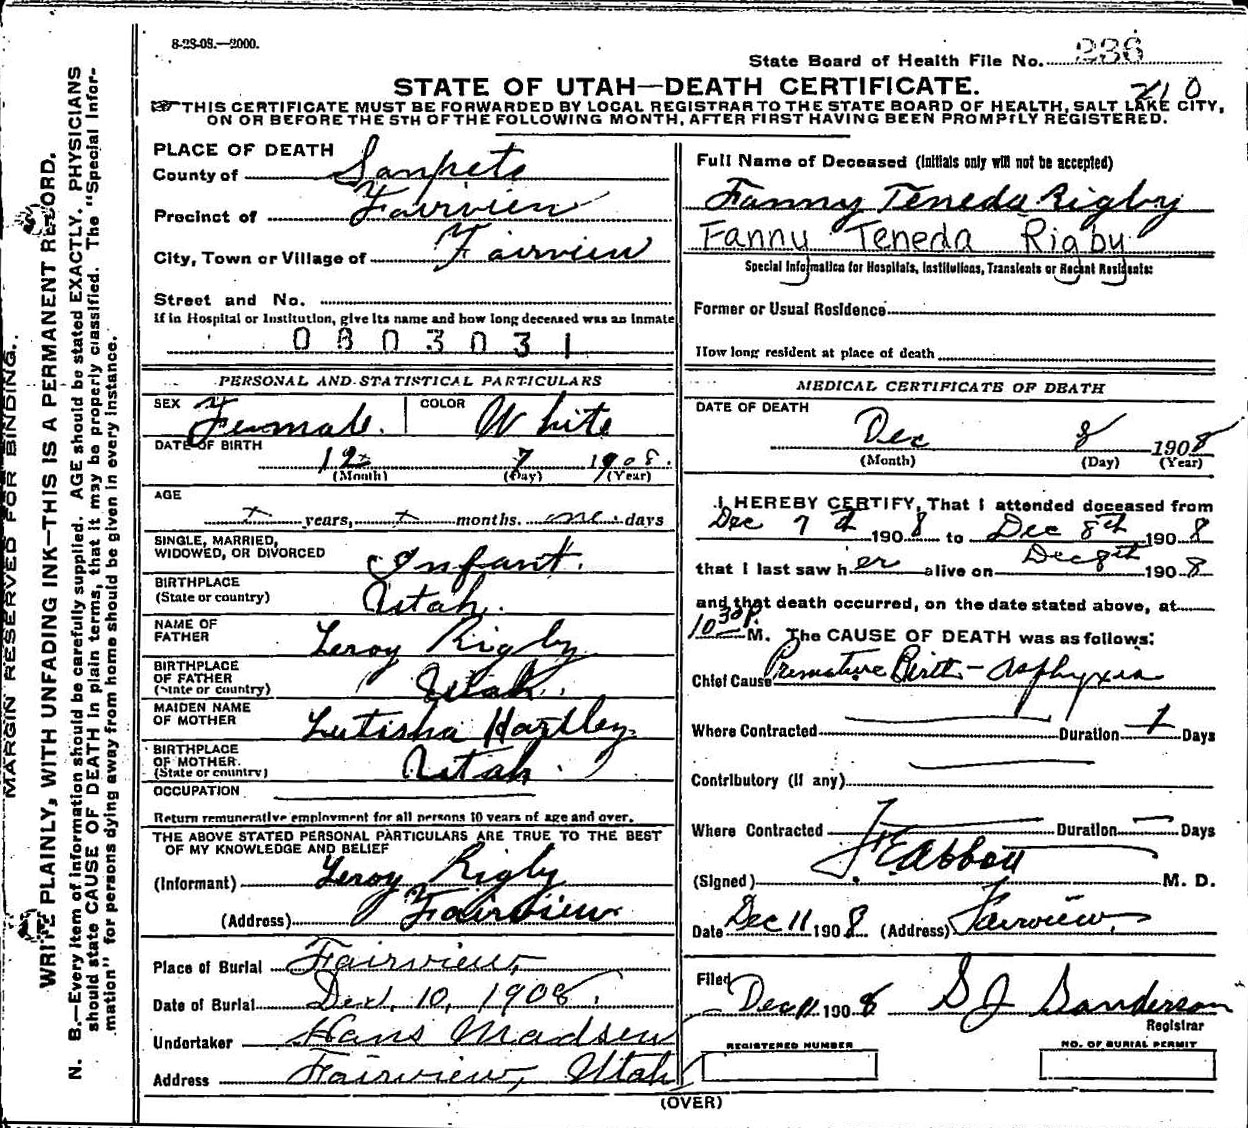 8-28-08.—2000.
State Board of Health File No. 236
STATE OF UTAH—DEATH CERTIFICATE.
210
☞THIS CERTIFICATE MUST BE FORWARDED BY LOCAL REGISTRAR TO THE STATE BOARD OF HEALTH, SALT LAKE CITY,
ON OR BEFORE THE 5TH OF THE FOLLOWING MONTH, AFTER FIRST HAVING BEEN PROMPTLY REGISTERED.
MARGIN RESERVED FOR BINDING.
WRITE PLAINLY, WITH UNFADING INK—THIS IS A PERMANENT RECORD.
N. B.—Every item of information should be carefully supplied. AGE should be stated EXACTLY. PHYSICIANS
should state CAUSE OF DEATH in plain terms, that it may be properly classified. The "Special Infor-
mation" for persons dying away from home should be given in every instance.
PLACE OF DEATH
County of Sanpete
Precinct of Fairview
City, Town or Village of Fairview
Street and No.
If in Hospital or Institution, give its name and how long deceased was an inmate
0803031
PERSONAL AND STATISTICAL PARTICULARS
SEX Female. COLOR White
DATE OF BIRTH
12 7 1908.
(Month) (Day) (Year)
AGE
years, months. one days
SINGLE, MARRIED,
WIDOWED, OR DIVORCED Infant.
BIRTHPLACE
(State or country) Utah.
NAME OF
FATHER Leroy Rigby
BIRTHPLACE
OF FATHER
(State or country) Utah.
MAIDEN NAME
OF MOTHER Letisha Hartley
BIRTHPLACE
OF MOTHER.
(State or country) Utah.
OCCUPATION
Return remunerative employment for all persons 10 years of age and over.
THE ABOVE STATED PERSONAL PARTICULARS ARE TRUE TO THE BEST
OF MY KNOWLEDGE AND BELIEF
(Informant) Leroy Rigby
(Address) Fairview
Place of Burial Fairview,
Date of Burial Dec. 10, 1908.
Undertaker Hans Madsen
Address Fairview, Utah
Full Name of Deceased (Initials only will not be accepted)
Fanny Teneda Rigby
Fanny Teneda Rigby
Special Information for Hospitals, Institutions, Transients or Recent Residents:
Former or Usual Residence
How long resident at place of death
MEDICAL CERTIFICATE OF DEATH
DATE OF DEATH
Dec 8 1908
(Month) (Day) (Year)
I HEREBY CERTIFY, That I attended deceased from
Dec 7th 1908 to Dec 8th 1908
that I last saw her alive on Dec 8th 1908
and that death occurred, on the date stated above, at
10 30 P. M. The CAUSE OF DEATH was as follows:
Chief Cause Premature Birth - Asphyxia
Where Contracted Duration 1 Days
Contributory (if any)
Where Contracted Duration Days
(Signed) M. D.
Date Dec 11 1908 (Address) Fairview,
Filed Dec 11 1908 S J Sanderson
Registrar
REGISTERED NUMBER NO. OF BURIAL PERMIT
(OVER)